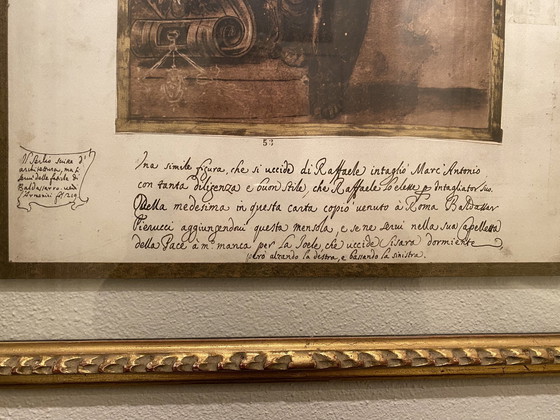 53
Una simile figura, che si uccide di Raffaele intagliò Marc' Antonio
con tanta diligenza e buon stile, che Raffaele l'elesse p Intagliator suo.
Quella medesima in questa carta copiò venuto à Roma Baldasser
Perucci aggiungendovi questa mensola, e se ne servì nella sua Capelletta
della Pace à mº manca per la Joele, che uccide Sisara dormiente
però alzando la destra, e bassando la sinistra.
scrive d'
architettura, ma si
servì delle fatiche di
Baldassarro. ved.
Armenini